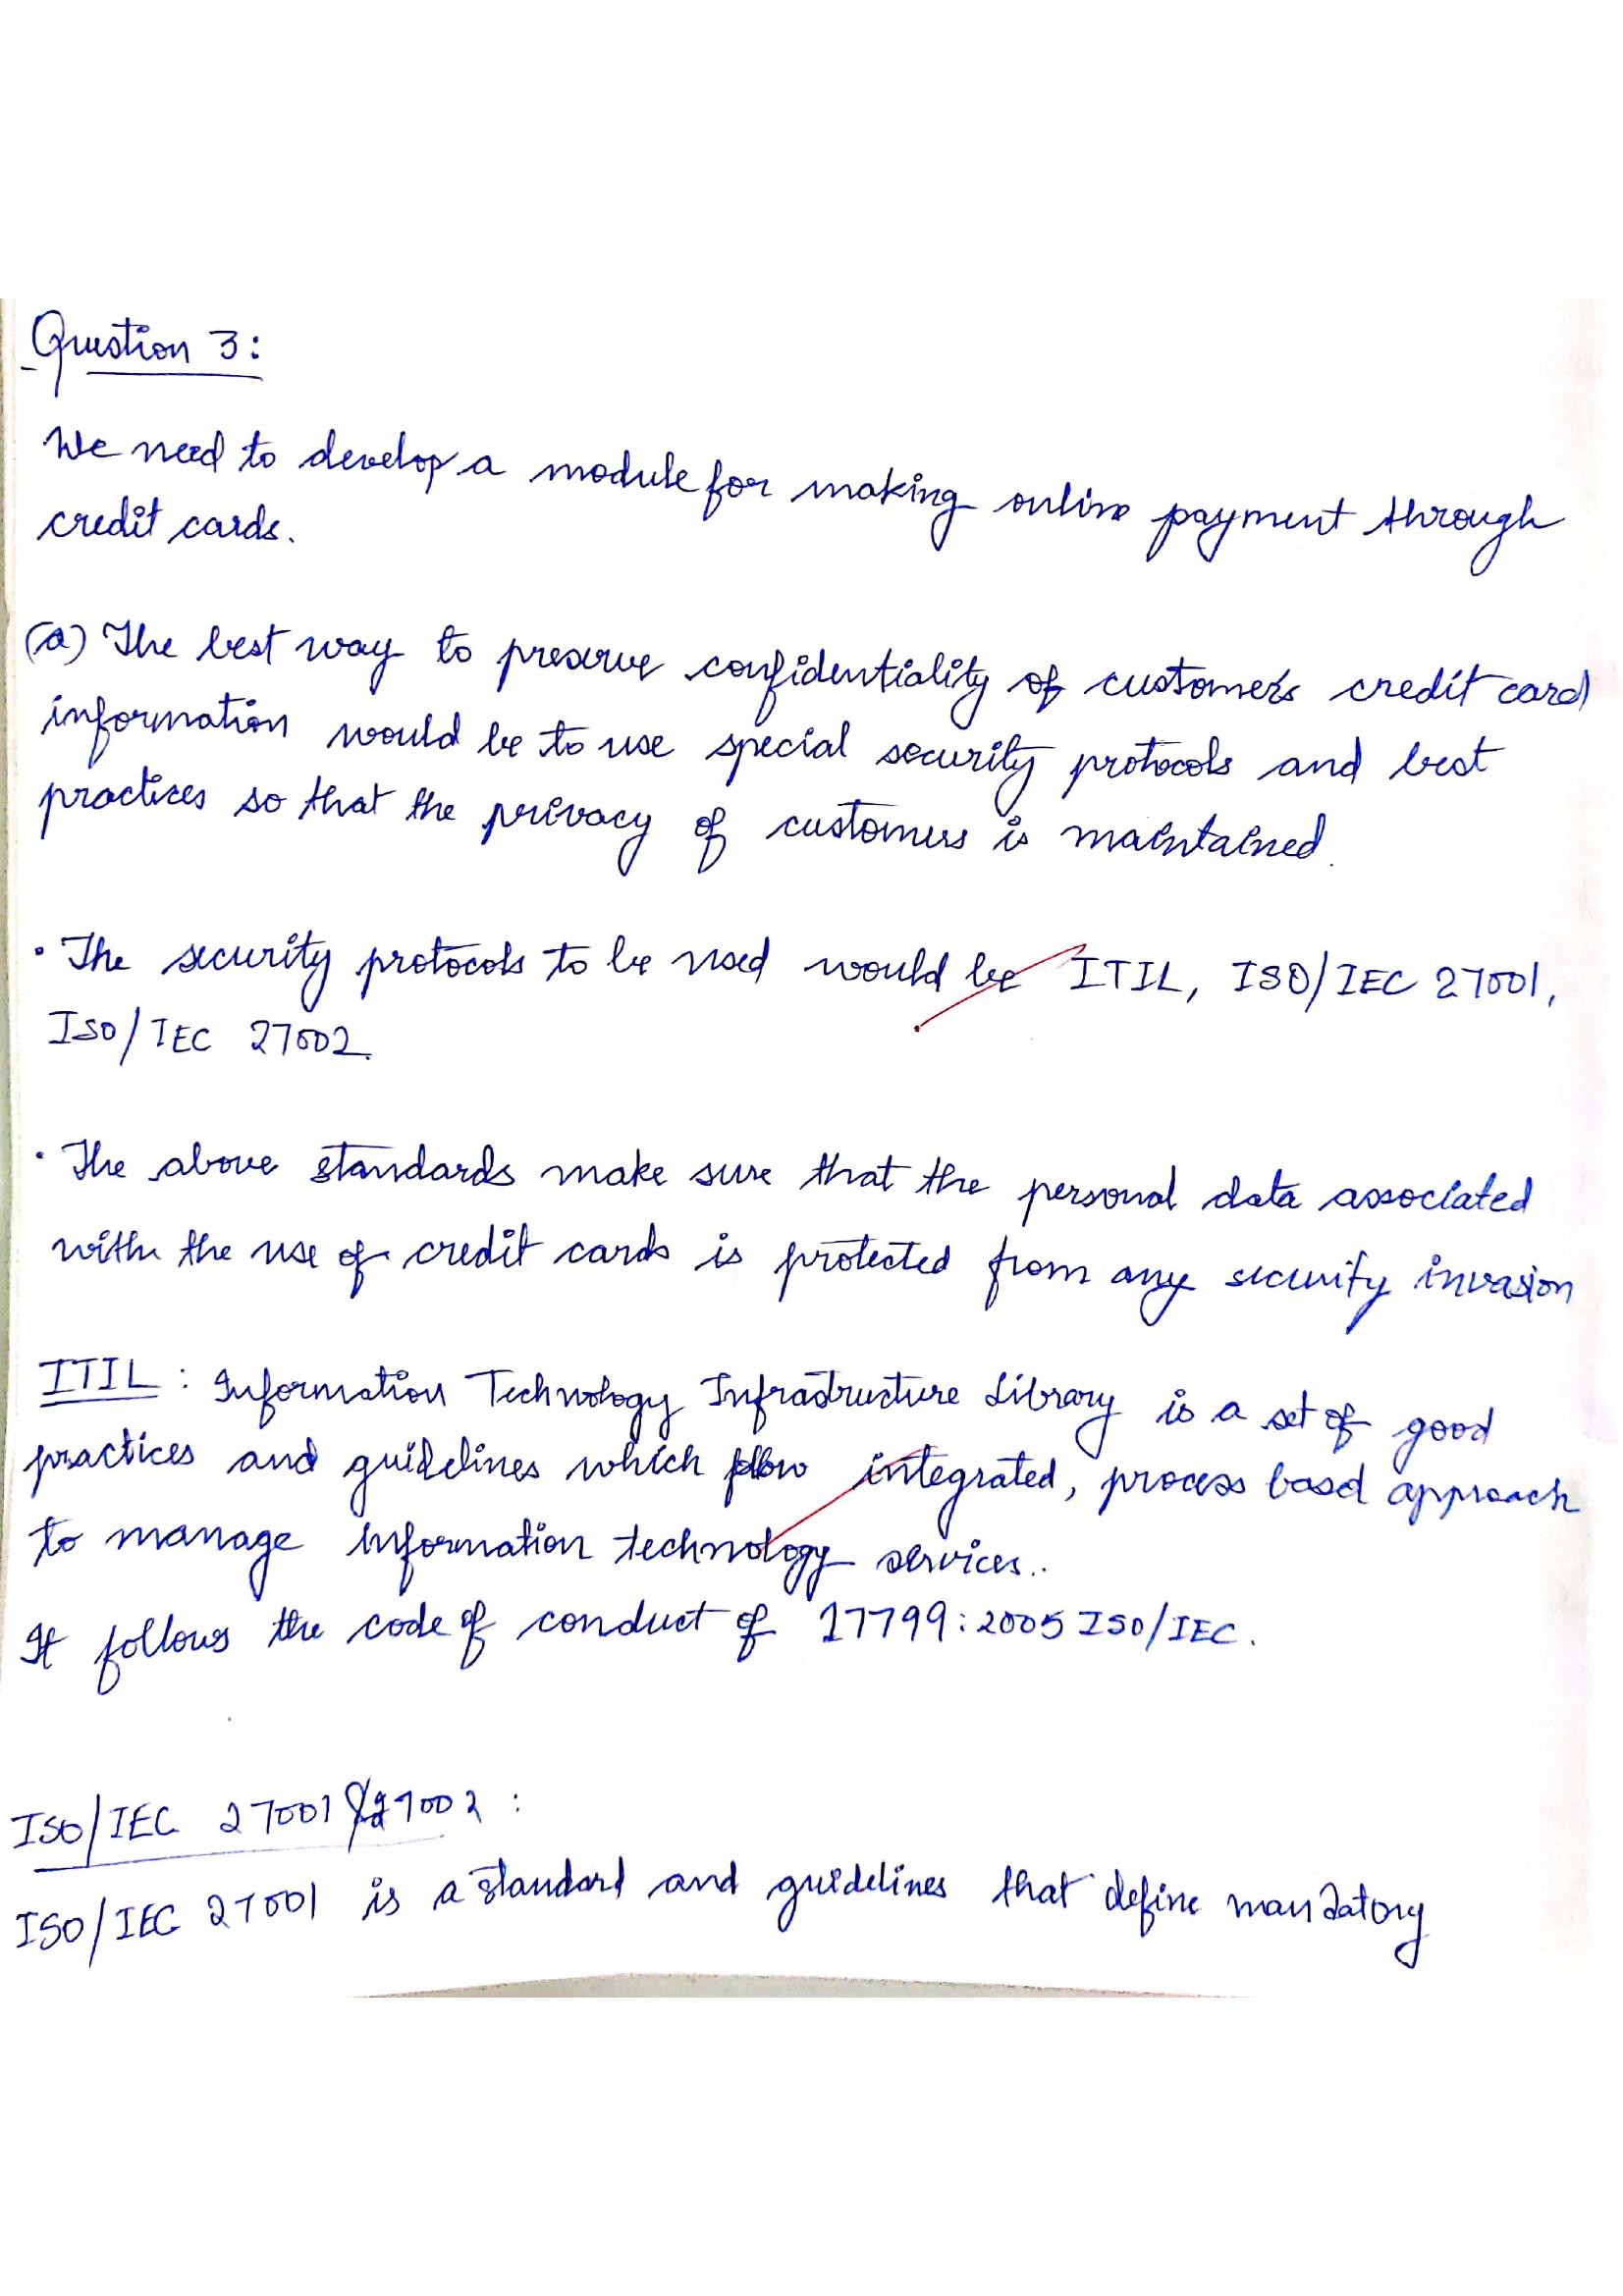 Question 3:
We need to develop a module for making online payment through
credit cards.
(a) The best way to preserve confidentiality of customer's credit card
information would be to use special security protocols and best
practices so that the privacy of customers is maintained.
• The security protocols to be used would be ITIL, ISO/IEC 27001,
ISO/IEC 27002.
• The above standards make sure that the personal data associated
with the use of credit cards is protected from any security invasion
ITIL : Information Technology Infrastructure Library is a set of good
practices and guidelines which integrated, process based approach
to manage information technology services..
It follows the code of conduct of 17799:2005 ISO/IEC.
ISO/IEC 27001 & 27002 :
ISO/IEC 27001 is a standard and guidelines that define mandatory